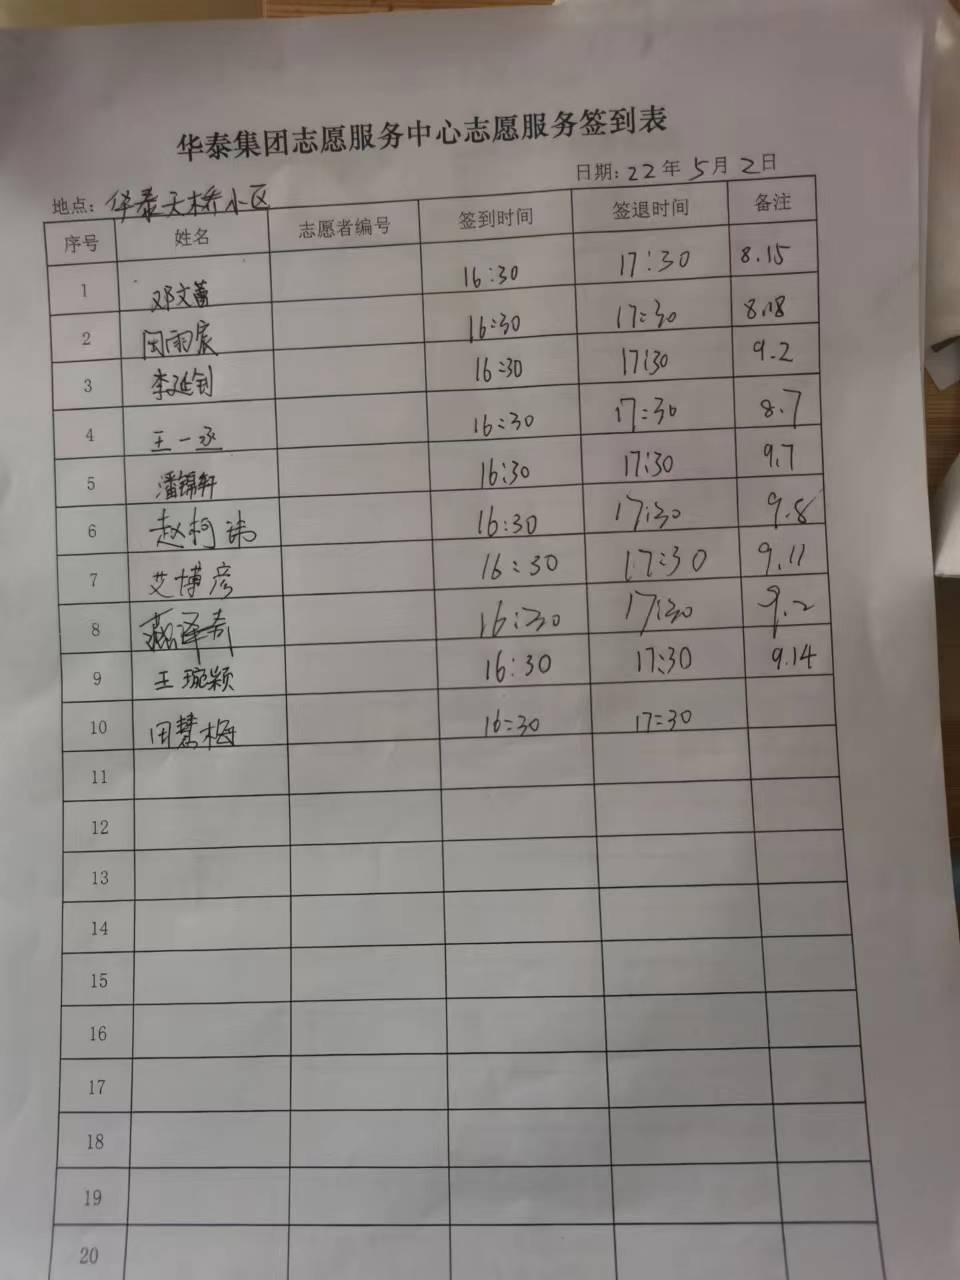 华泰集团志愿服务中心志愿服务签到表
地点：华泰天桥小区 日期：22年5月2日
序号 姓名 志愿者编号 签到时间 签退时间 备注
1 邓文蕾 16:30 17:30 8.15
2 闫雨宸 16:30 17:30 8.18
3 李延钊 16:30 17:30 9.2
4 王一丞 16:30 17:30 8.7
5 潘锦轩 16:30 17:30 9.7
6 赵柯祎 16:30 17:30 9.8
7 艾博彦 16:30 17:30 9.11
8 16:30 17:30 9.2
9 王琬颖 16:30 17:30 9.14
10 田慧梅 16:30 17:30
11
12
13
14
15
16
17
18
19
20